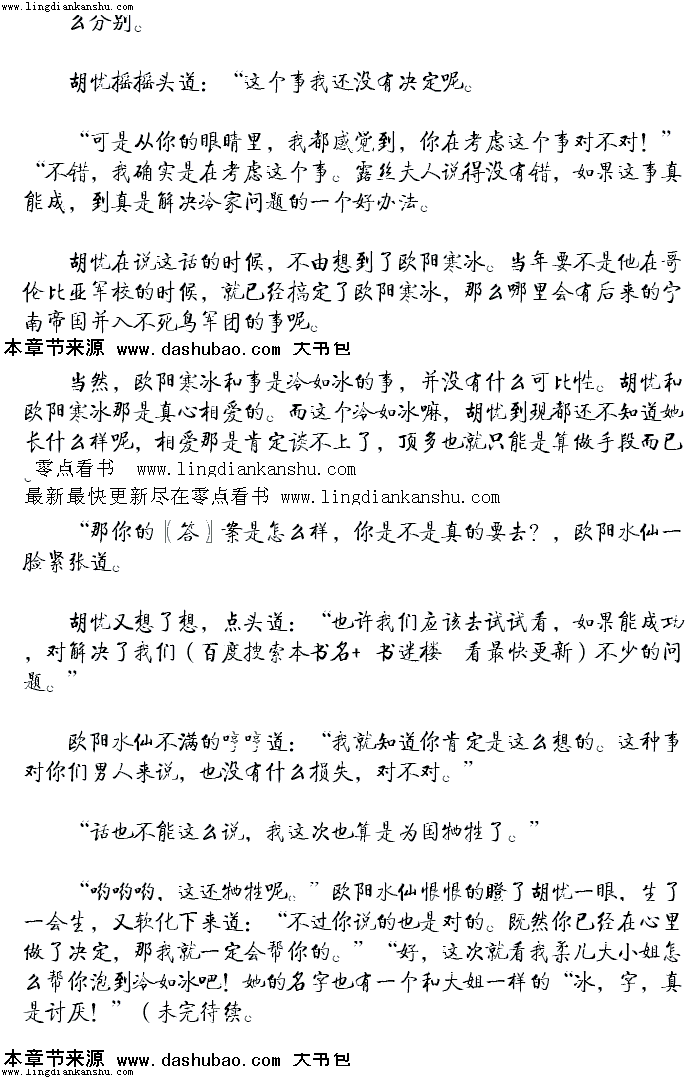 www.lingdiankanshu.com
么分别。
胡忧摇摇头道：“这个事我还没有决定呢。
“可是从你的眼睛里，我都感觉到，你在考虑这个事对不对！”
“不错，我确实是在考虑这个事。露丝夫人说得没有错，如果这事真
能成，到真是解决冷家问题的一个好办法。
胡忧在说这话的时候，不由想到了欧阳寒冰。当年要不是他在哥
伦比亚军校的时候，就已经搞定了欧阳寒冰，那么哪里会有后来的宁
南帝国并入不死鸟军团的事呢。
本章节来源 www.dashubao.com 大书包
当然，欧阳寒冰和事是冷如冰的事，并没有什么可比性。胡忧和
欧阳寒冰那是真心相爱的。而这个冷如冰嘛，胡忧到现都还不知道她
长什么样呢，相爱那是肯定谈不上了，顶多也就只能是算做手段而已
。零点看书 www.lingdiankanshu.com
最新最快更新尽在零点看书 www.lingdiankanshu.com
“那你的〖答〗案是怎么样，你是不是真的要去？，欧阳水仙一
脸紧张道。
胡忧又想了想，点头道：“也许我们应该去试试看，如果能成功
，对解决了我们（百度搜索本书名+ 书迷楼 看最快更新）不少的问
题。”
欧阳水仙不满的哼哼道：“我就知道你肯定是这么想的。这种事
对你们男人来说，也没有什么损失，对不对。”
“话也不能这么说，我这次也算是为国牺牲了。”
“哟哟哟，这还牺牲呢。”欧阳水仙恨恨的瞪了胡忧一眼，生了
一会生，又软化下来道：“不过你说的也是对的。既然你已经在心里
做了决定，那我就一定会帮你的。”“好，这次就看我柔儿大小姐怎
么帮你泡到冷如冰吧！她的名字也有一个和大姐一样的“冰，字，真
是讨厌！”（未完待续。
本章节来源 www.dashubao.com 大书包
www.lingdiankanshu.com